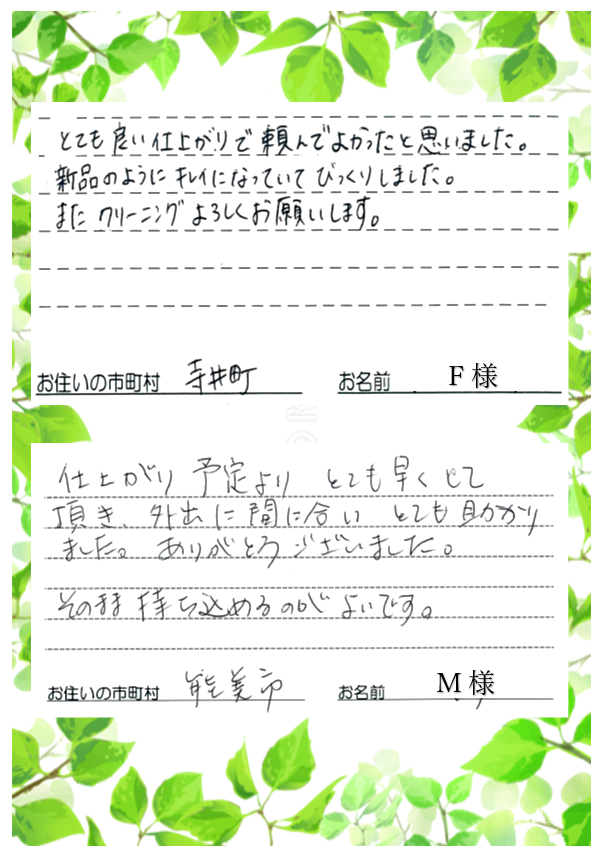 とても良い仕上がりで頼んでよかったと思いました。
新品のようにキレイになっていてびっくりしました。
またクリーニングよろしくお願いします。
お住いの市町村 寺井町 お名前 F 様
仕上がり 予定より とても早くして
頂き、外出に間に合い とても助かり
ました。ありがとうございました。
そのまま持ち込めるのがよいです。
お住いの市町村 能美市 お名前 M 様